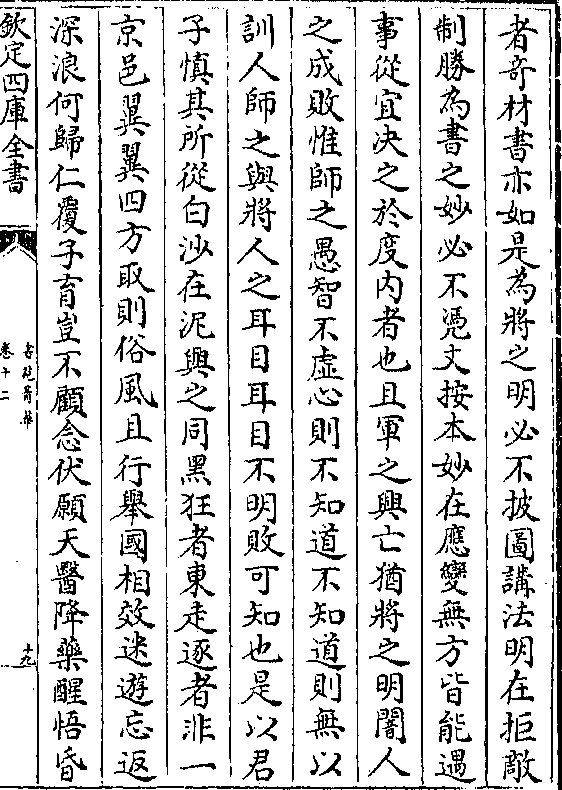 者奇材書亦如是為將之明必不披圖講法明在拒敵
制勝為書之妙必不凭文按本妙在應變無方皆能遇
事從宜决之於度内者也且軍之興亡猶將之明闇人
之成敗惟師之愚智不虚心則不知道不知道則無以
訓人師之與將人之耳目耳目不明敗可知也是以君
子慎其所從白沙在泥與之同黑狂者東走逐者非一
京邑翼翼四方取則俗風且行舉國相效迷遊忘返
深浪何歸仁覆子育豈不顧念伏願天醫降藥醒悟昏
欽定四庫全書
書苑菁華
卷十二
十九